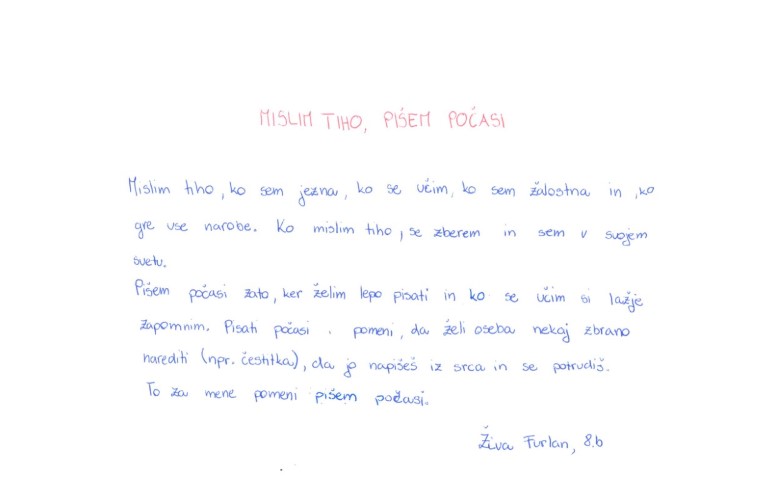 MISLIM TIHO, PIŠEM POČASI
Mislim tiho, ko sem jezna, ko se učim, ko sem žalostna in ,ko
gre vse narobe. Ko mislim tiho, se zberem in sem v svojem
svetu.
Pišem počasi zato, ker želim lepo pisati in ko se učim si lažje
zapomnim. Pisati počasi pomeni, da želi oseba nekaj zbrano
narediti (npr. čestitka), da jo napišeš iz srca in se potrudiš.
To za mene pomeni pišem počasi.
Živa Furlan, 8.b